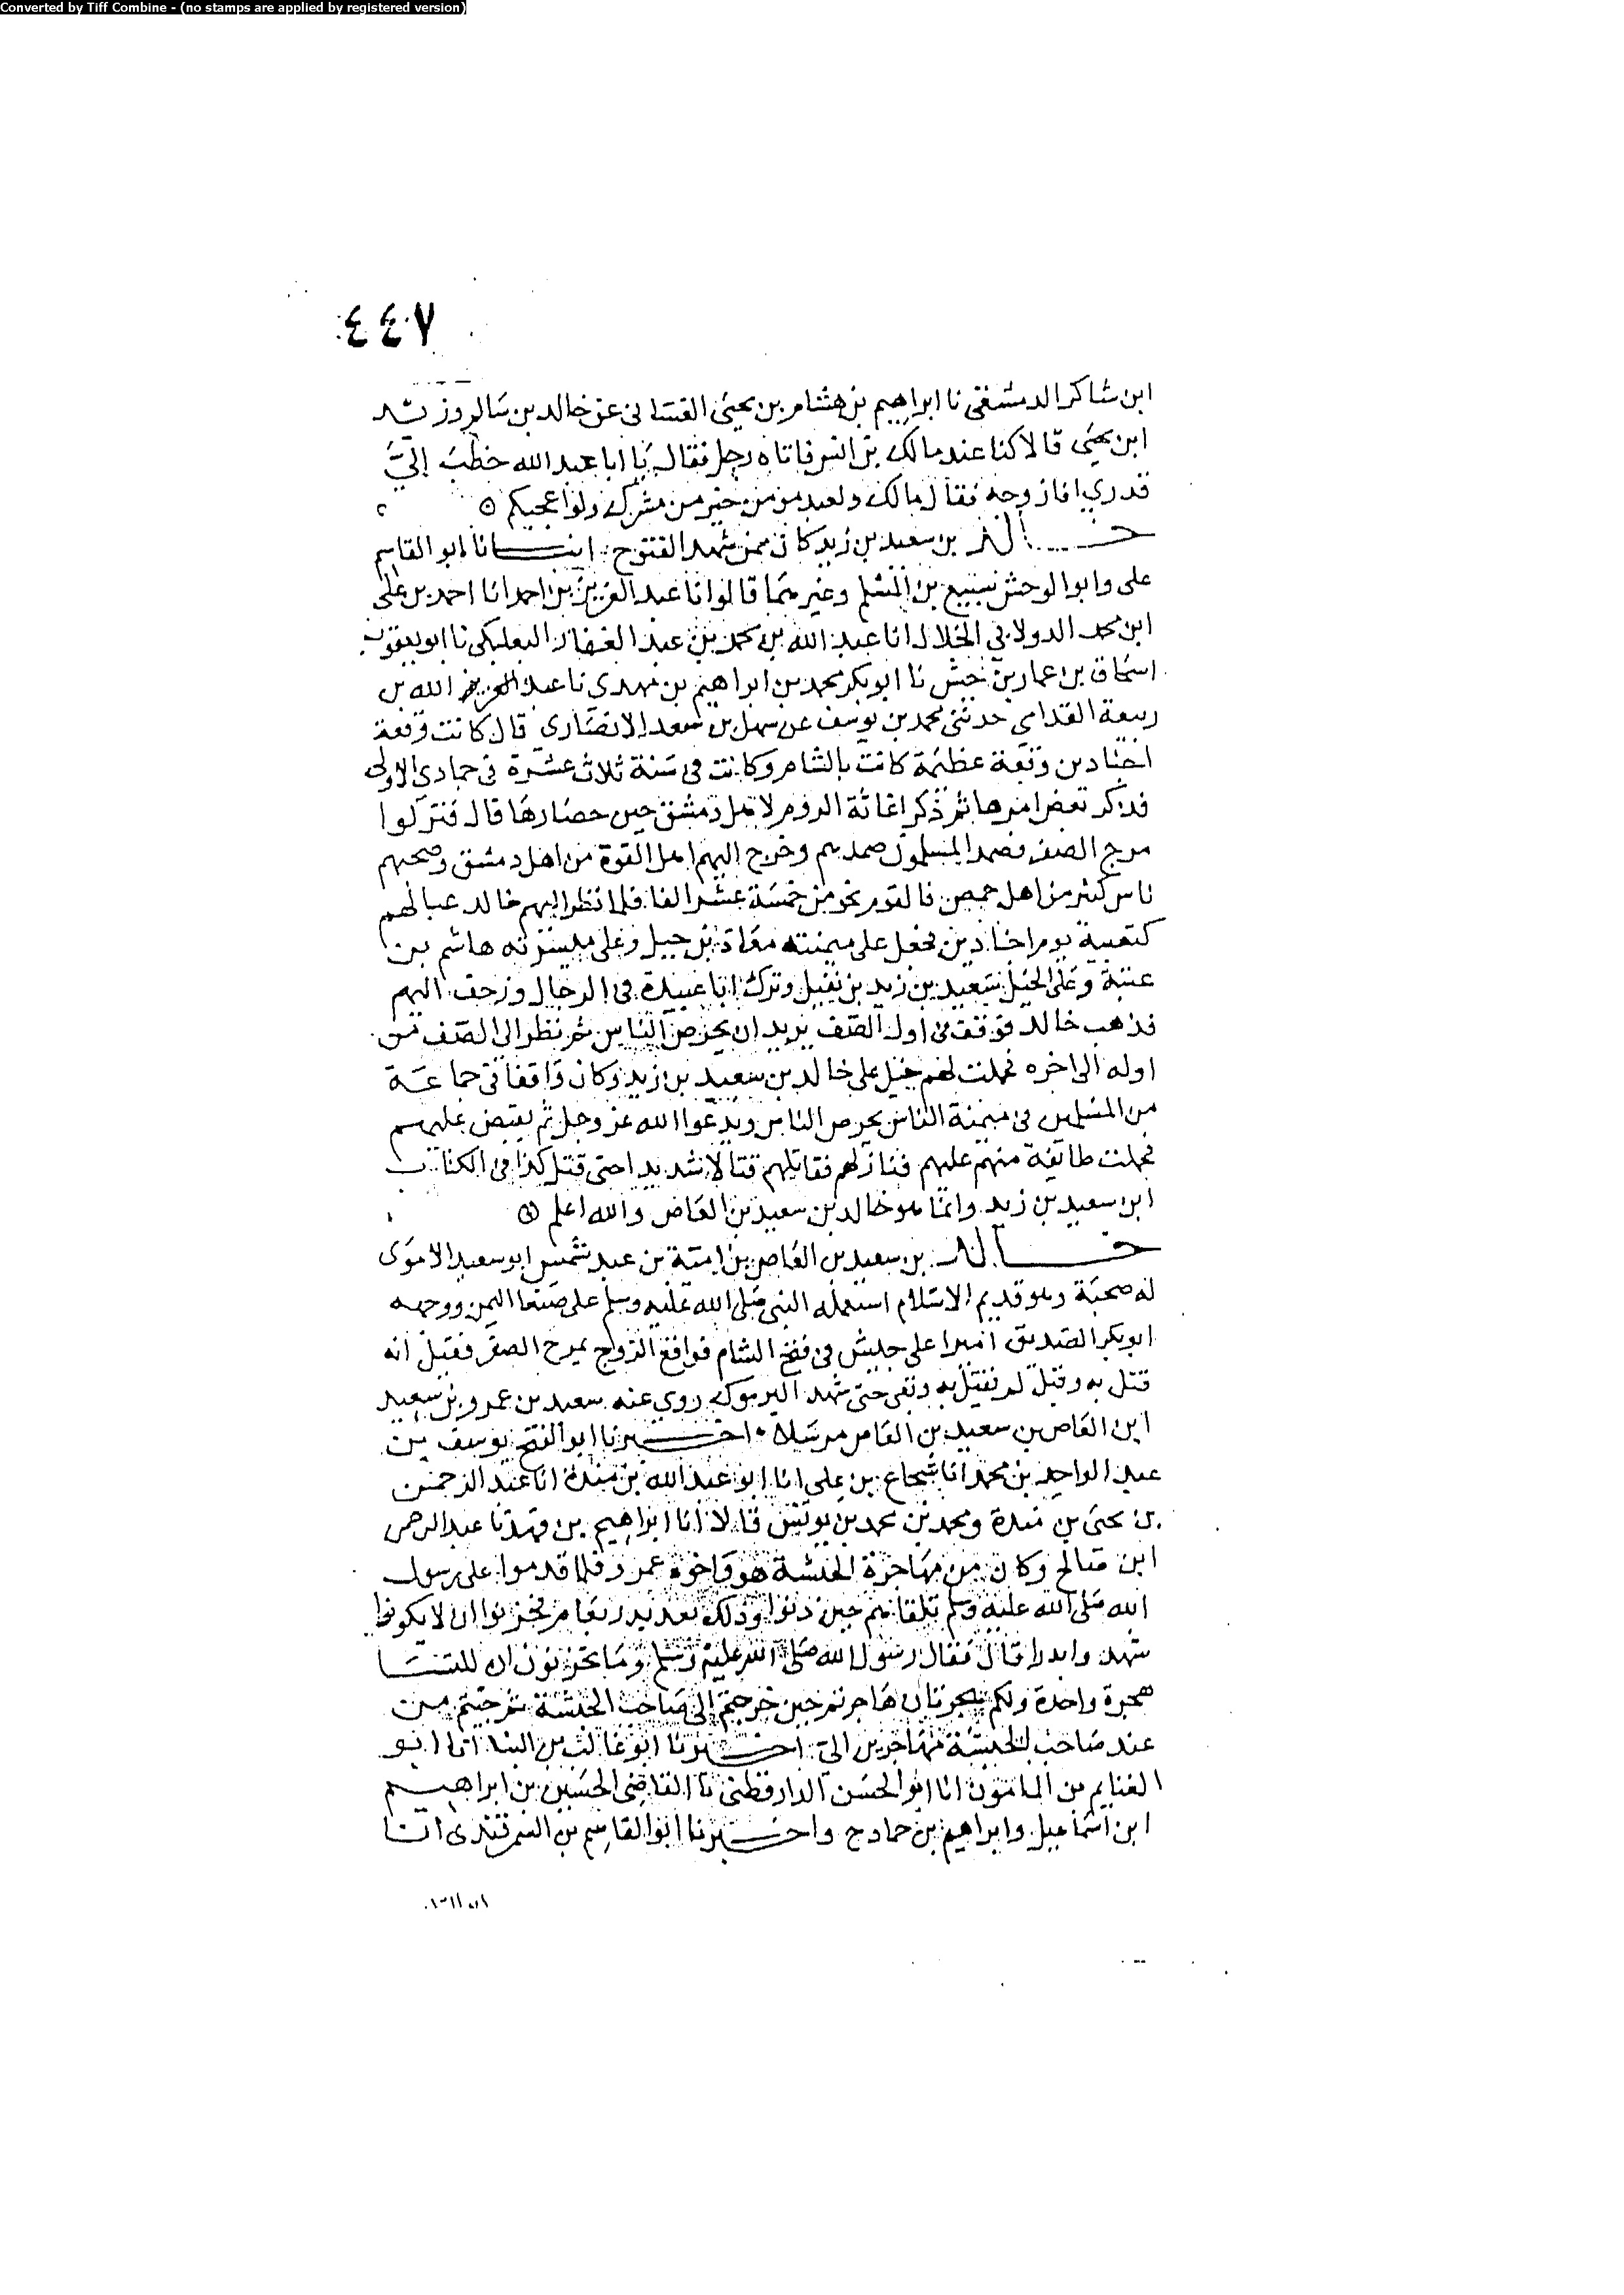 Converted by Tiff Combine - (no stamps are applied by registered version)
٤٤٧
ابن شاكر الدمشقى نا ابراهيم بن هشام بن يحيى الغسانى عن خالد بن سالم
ابن يحيى قالا كنا عند مالك بن انس فاتاه رجل فقال يا ابا عبد الله خطب إليّ
قدري افازوجه فقال مالك ولعبد مومن خير من مشرك ولو اعجبكم
خالد بن سعيد بن زيد كان ممن شهد الفتوح انبانا ابو القاسم
على وابو الوحش سبيع بن المسلم وغيرهما قالوا نا عبد العزيز بن احمد انا احمد بن على
ابن محمد الدولابي الخلال انا عبد الله بن محمد بن عبد الغفار البعلبكى نا ابو يعقوب
اسحاق بن عمار بن حبش نا ابو بكر محمد بن ابراهيم بن مهدي نا عبد الله بن
ربيعة القدامي حدثنى محمد بن يوسف عن سهل بن سعد الانصاري قال كانت وقعة
اجنادين وقعة عظيمة كانت بالشام وكانت فى سنة ثلاث عشرة فى جمادى الاولى
فذكر بعض امرها ثم ذكر اغاثة الروم لاهل دمشق حين حصارها قال فنزلوا
مرج الصفر فصمد المسلمون صمدهم وخرج اليهم اهل القوة من اهل دمشق وصحبهم
ناس كثير من اهل حمص فالقوم نحو من خمسة عشر الفا فلما نظر اليهم خالد عبا لهم
كتعبية يوم اجنادين فجعل على ميمنته معاذ بن جبل وعلى ميسرته هاشم بن
عتبة وعلى الخيل سعيد بن زيد بن نفيل وترك ابا عبيدة فى الرجال وزحف اليهم
فذهب خالد فوقف فى اول الصف يريد ان يحرض الناس ثم نظر الى الصف من
اوله الى اخره فحملت لهم خيل على خالد بن سعيد بن زيد وكان واقفا فى جماعة
من المسلمين فى ميمنة الناس يحرض الناس ويدعوا الله عز وجل ثم يقبض عليهم
فحملت طائفة منهم عليهم فنازلهم فقاتلهم قتالا شديدا حتى قتل كذا فى الكتاب
ابن سعيد بن زيد وانما هو خالد بن سعيد بن العاص والله اعلم
خالد بن سعيد بن العاص بن امية بن عبد شمس ابو سعيد الاموى
له صحبة وهو قديم الاسلام استعمله النبى صلى الله عليه وسلم على صنعا اليمن ووجهه
ابو بكر الصديق اميرا على جيش فى فتح الشام فواقع الروم بمرج الصفر فقيل انه
قتل به وقيل لم يقتل به وبقى حتى شهد اليرموك روى عنه سعيد بن عمرو بن سعيد
ابن العاص بن سعيد بن العاص مرسلا اخبرنا ابو الفتح يوسف بن
عبد الواحد بن محمد انا شجاع بن على انا ابو عبد الله بن مندة انا عبد الرحمن
بن يحيى بن مندة ومحمد بن محمد بن يونس قالا انا ابراهيم بن فهد نا عبد الرحمن
ابن صالح وكان من مهاجرة الحبشة هو واخوه عمرو فلما قدموا على رسول
الله صلى الله عليه وسلم تلقاهم حين دنوا وذلك بعد بدر بعام فحزنوا ان لا يكونوا
شهدوا بدرا قال فقال رسول الله صلى الله عليه وسلم وما تحزنون ان للناس
هجرة واحدة ولكم هجرتان هاجرتم حين خرجتم الى صاحب الحبشة ثم جئتم من
عند صاحب الحبشة مهاجرين الي اخبرنا ابو غالب بن البنا انا ابو
الغنايم بن المامون انا ابو الحسن الدارقطنى نا القاضى الحسين بن ابراهيم
ابن اسماعيل وابراهيم بن حماد ح واخبرنا ابو القاسم بن السمرقندى انا